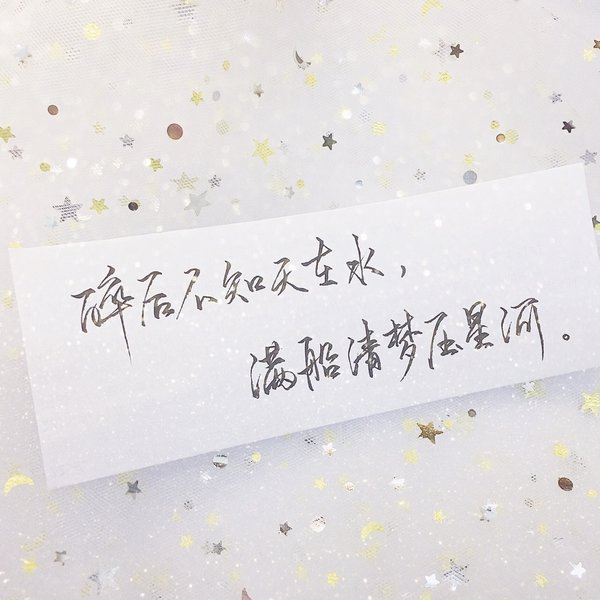 醉后不知天在水，
满船清梦压星河。